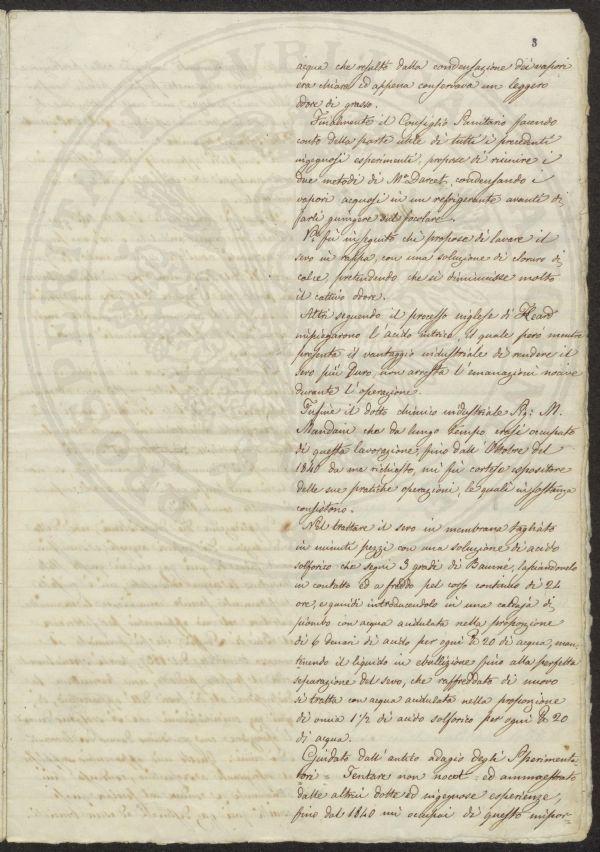 3
acqua che resultò dalla condensazione dei vapori
era chiara ed appena conservava un leggero
odore di grasso.
Finalmente il Consiglio Sanitario facendo
conto della parte utile di tutti i precedenti
ingegnosi esperimenti, propose di riunire i
due metodi di Mr. Darcet, condensando i
vapori acquosi in un refrigerante avanti di
farli giungere sul focolare.
Vi fù in seguito chi propose di lavare il
sevo in rappa, con una soluzione di cloruro di
calce, pretendendo che si diminuisse molto
il cattivo odore.
Altri seguendo il processo inglese di Heard
impiegarono l'acido nitrico, il quale però mentre
presenta il vantaggio industriale di rendere il
sevo più duro, non arresta l'emanazioni nocive
durante l'operazione.
Infine il dotto chimico industriale Sig: M.
Mandani che da lungo tempo erasi occupato
di questa lavorazione, fino dall'Ottobre del
1840 da me richiesto, mi fù cortese espositore
delle sue pratiche operazioni, le quali in sostanza
consistono.
Nel trattare il sevo in membrana tagliata
in minuti pezzi con una soluzione di acido
solforico che segni 3 gradi di Baumé, lasciandovelo
in contatto ed a freddo pel corso continuo di 24
ore, e quindi introducendolo in una caldaja di
piombo con acqua acidulata nella proporzione
di 6 denari di acido per ogni ℔ 20 di acqua, man-
tenendo il liquido in ebullizione fino alla perfetta
separazione del sevo, che raffreddato di nuovo
si tratta con acqua acidulata nella proporzione
di oncia 1 1/2 di acido solforico per ogni ℔ 20
di acqua.
Guidato dall'antico adagio degli Sperimenta-
tori = Tentare non nocet = ed ammaestrato
dalle altrui dotte ed ingegnose esperienze,
fino dal 1840 mi occupai di questo impor-